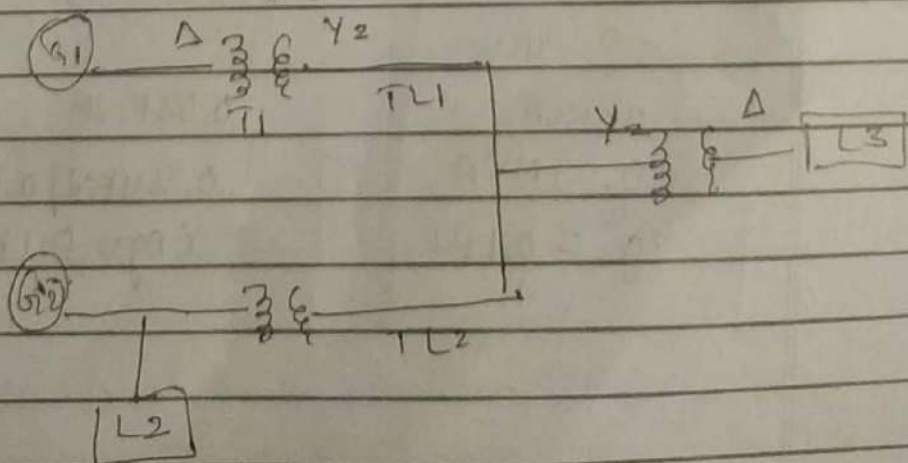 G1 Δ Y2
T1 TL1
Y2 Δ L3
G2
TL2
L2